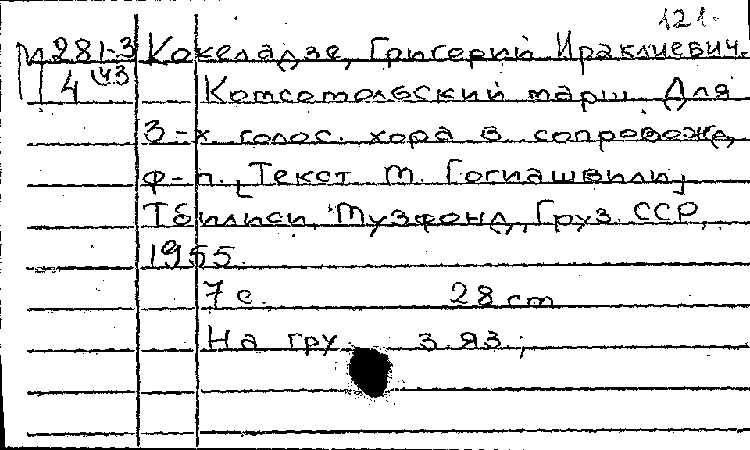 121.
М 281-3 Кокеладзе, Григорий Ираклиевич.
4 (43 Комсомольский марш. Для
3-х голос. хора в сопровожд.
ф-п. [Текст М. Гогиашвили]
Тбилиси, Музфонд, Груз. ССР,
1955.
7 с. 28 cm
На гру з. яз.;